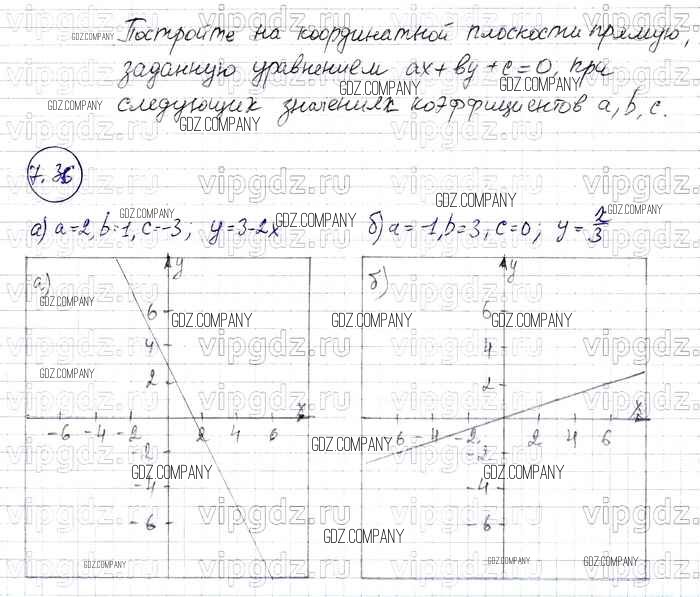 Постройте на координатной плоскости прямую,
заданную уравнением ax+by+c=0, при
следующих значениях коэффициентов a, b, c.
7.36
а) a=2, b=1, c=-3; y=3-2x
б) a=-1, b=3, c=0; y=x/3
а)
y
6
4
2
x
-6 -4 -2 2 4 6
-2
-4
-6
б)
y
6
4
2
x
-6 -4 -2 2 4 6
-2
-4
-6
GDZ.COMPANY
vipgdz.ru